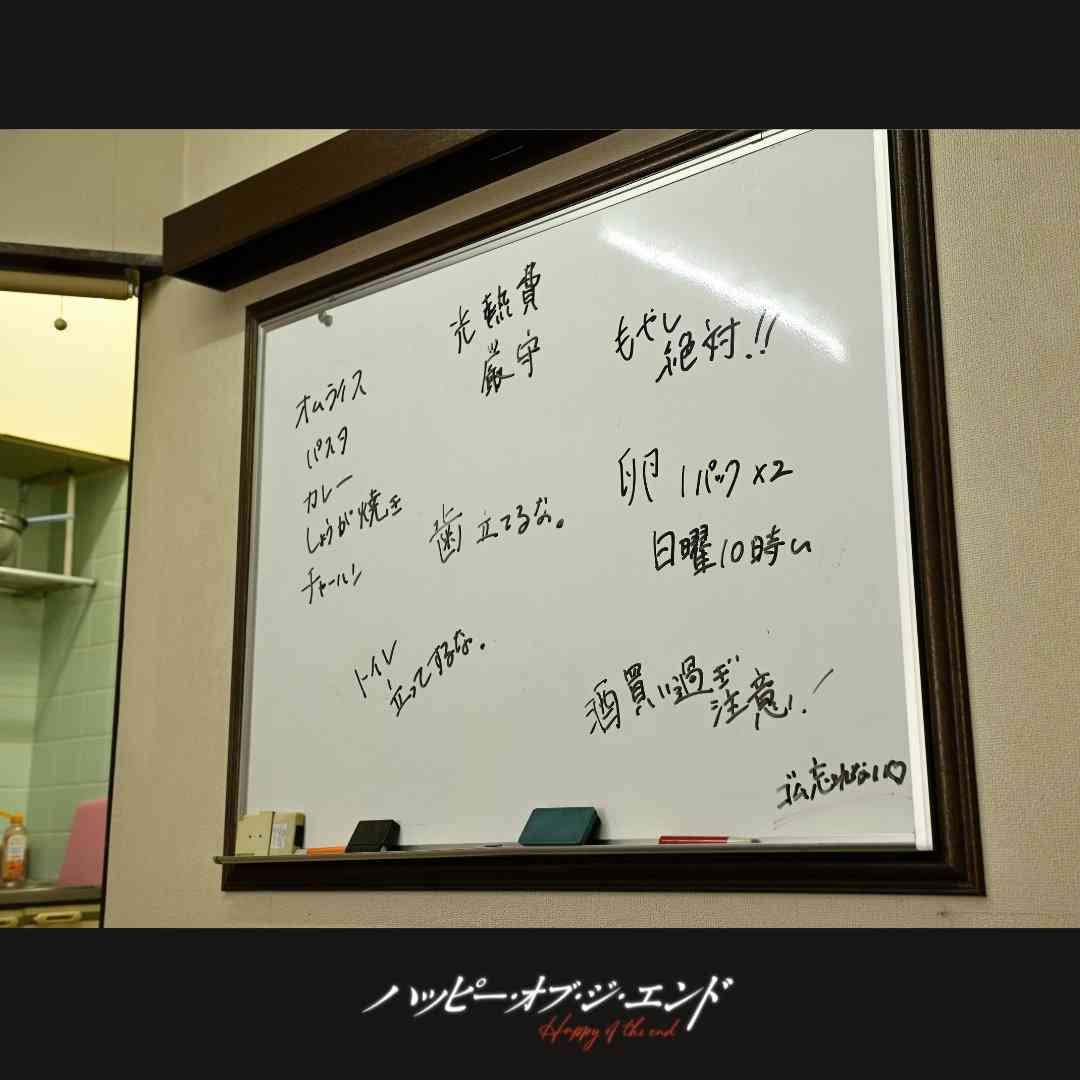 光熱費
厳守
もやし
絶対!!
オムライス
パスタ
カレー
しょうが焼き
チャーハン
歯立てるな。
卵 1パック×2
日曜10時〜
トイレ
立ってするな。
酒買い過ぎ
注意!!
ゴム忘れない♡
ハッピー・オブ・ジ・エンド
Happy of the end